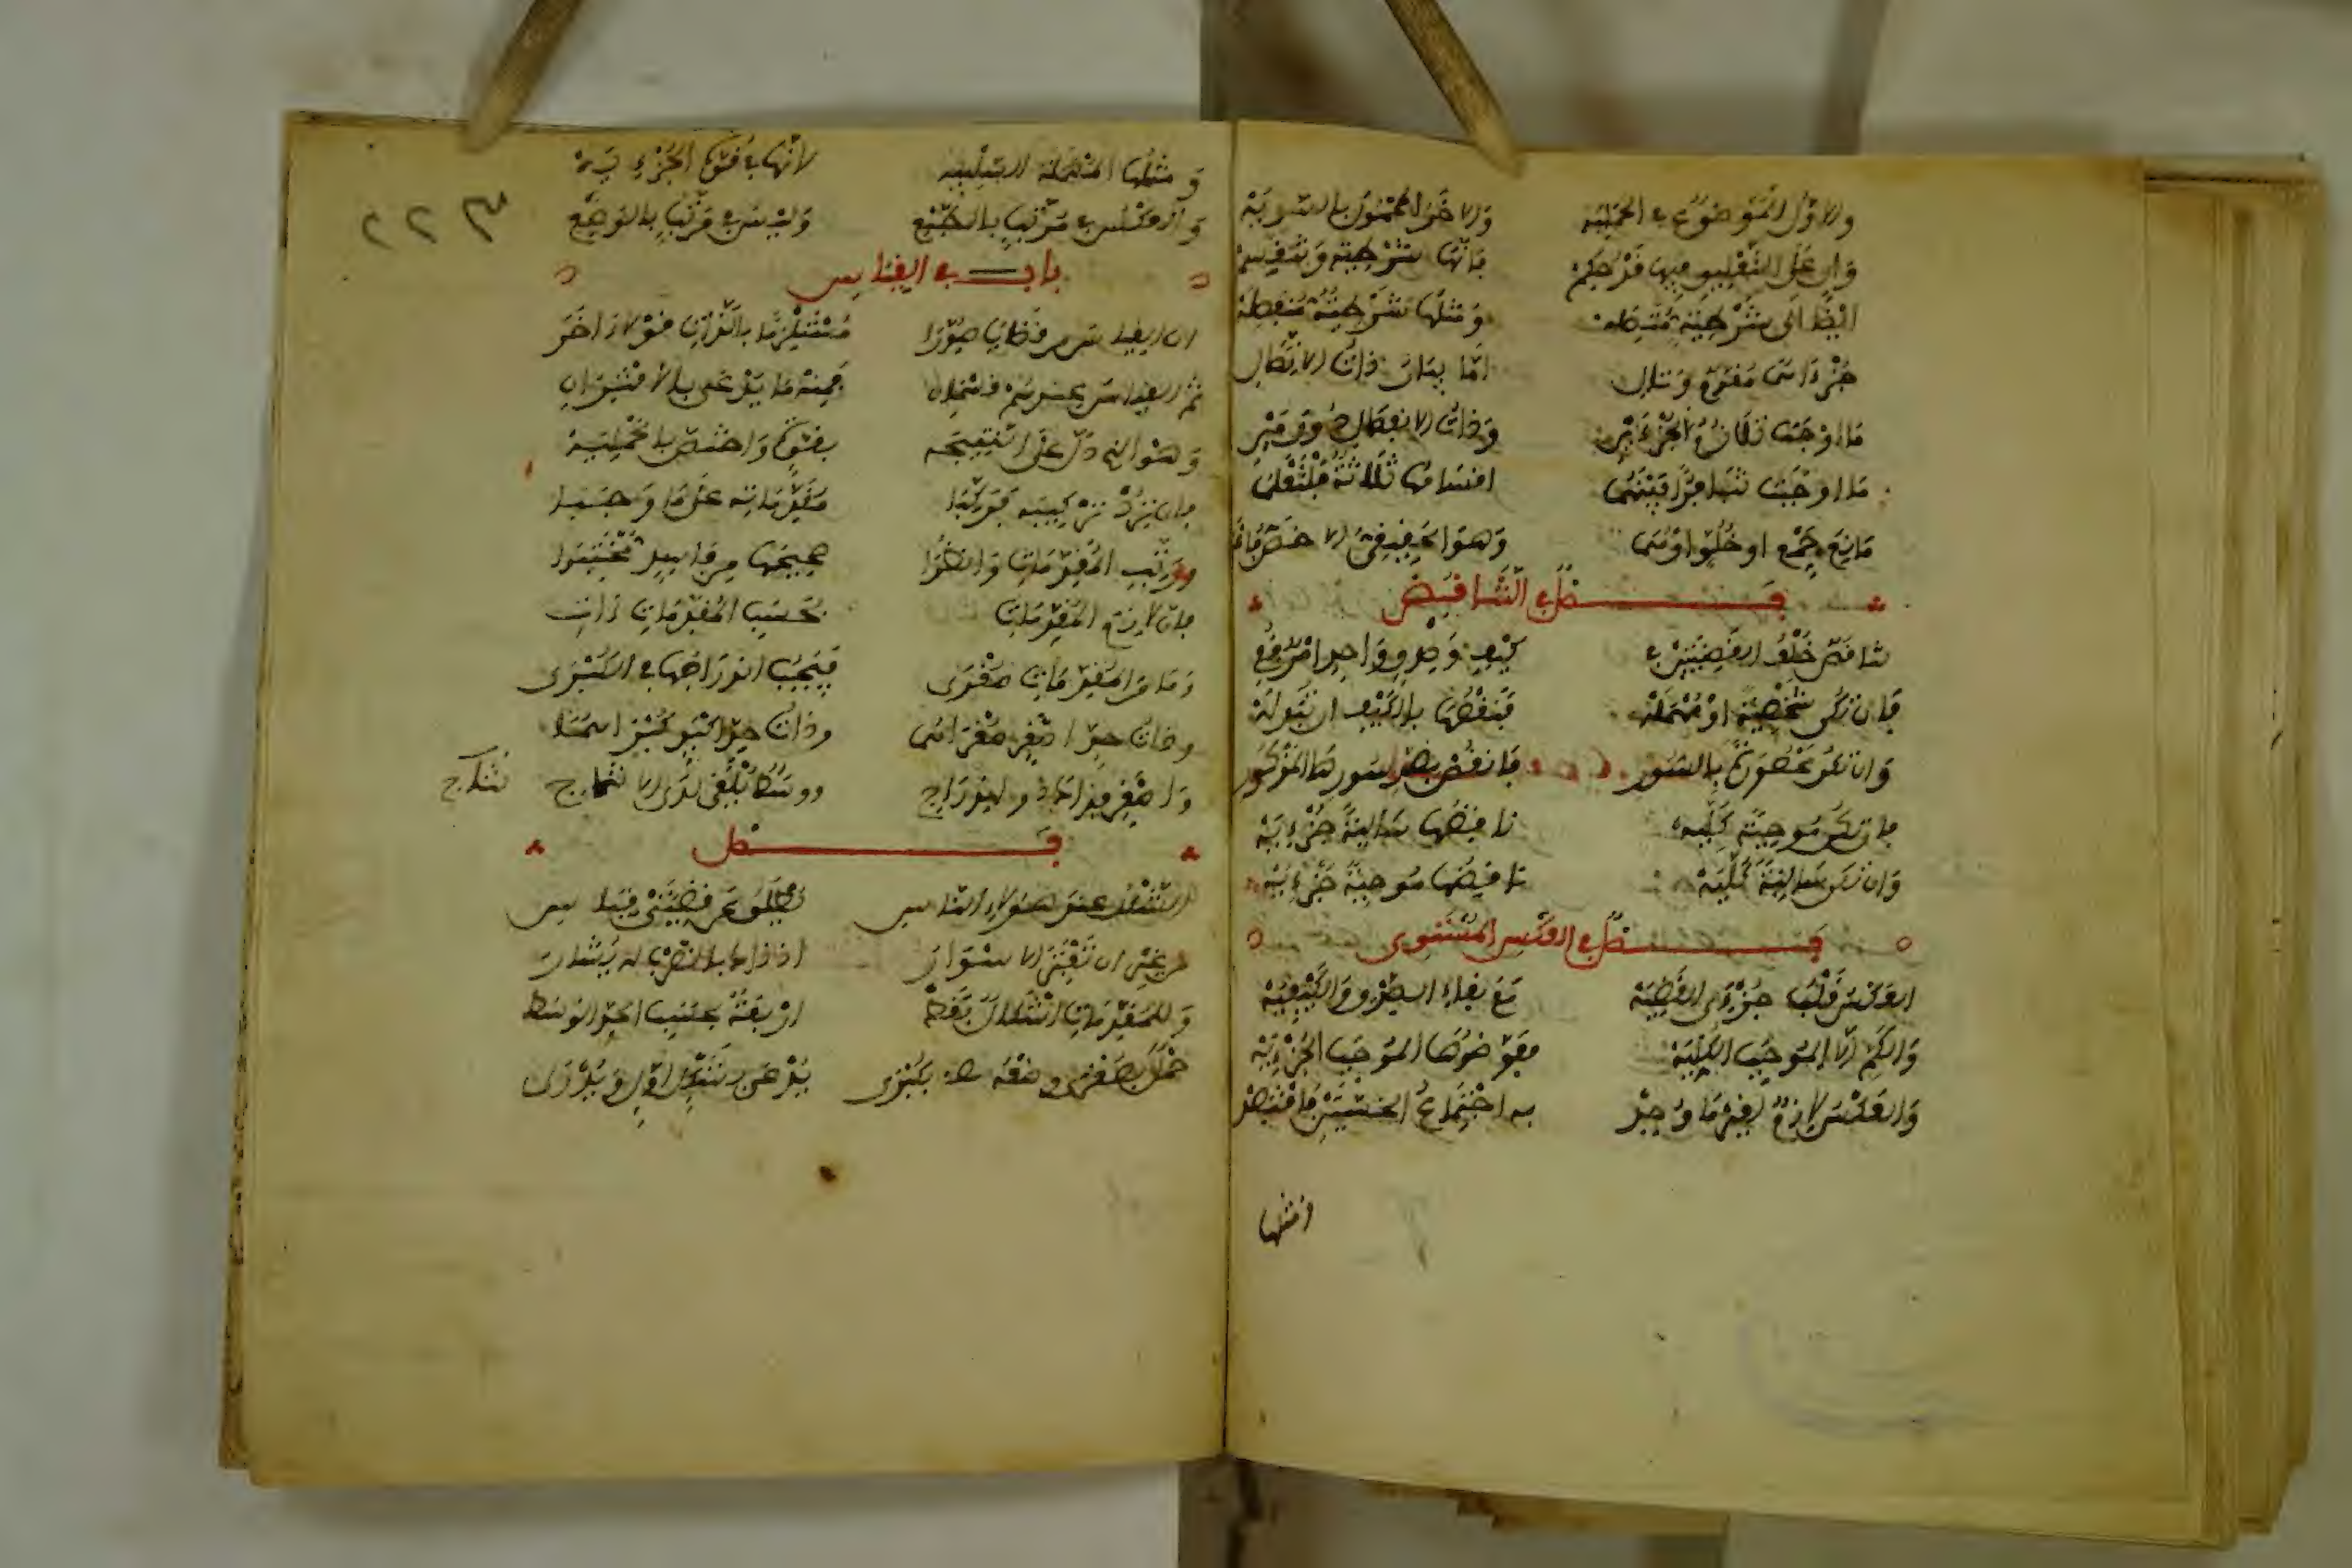 والاول الموضوع في الحملية والاخر المحمول بالسوية
وان على التعليق فيها قد حكم فانها شرطية وتنقسم
ايضا الى شرطية متصله ومثلها شرطية منفصلة
جزءاهما مقدم وتال اما بيان ذات الاتصال
ما اوجبت تلازم الجزءين وذات الانفصال دون مين
ما اوجبت تنافرا بينهما اقسامها ثلاثة فلتعلما
مانع جمع او خلو او هما وهو الحقيقي الاخص فاعلما
فصل في التناقض
تناقض خلف القضيتين في كيف وصدق واحد امر قفي
فان تكن شخصية او مهملة فنقضها بالكيف ان تبدله
وان تكن محصورة بالسور فانقض بضد سورها المذكور
فان تكن موجبة كليه نقيضها سالبة جزءيه
وان تكن سالبة كليه نقيضها موجبة جزءيه
فصل في العكس المستوى
العكس قلب جزءي القضيه مع بقاء الصدق والكيفيه
والكم الا الموجب الكليه فعوضوها الموجب الجزءيه
والعكس لازم لغير ما وجد به اجتماع الخستين فاقتصد
ومثلها
ومثلها المهملة السلبيه لانها في قوة الجزءيه
والعكس في مرتب بالطبع وليس في مرتب بالوضع
باب في القياس
ان القياس من قضايا صورا مستلزما بالذات قولا اخر
ثم القياس عندهم قسمان فمنه ما يدعى بالاقتراني
وهو الذي دل على النتيجه بقوة واختص بالحمليه
فان ترد تركيبه فركبا مقدماته على ما وجبا
ورتب المقدمات وانظرا صحيحها من فاسد مختبرا
فان لازم المقدمات بحسب المقدمات ءات
وما من المقدمات صغرى فيجب اندراجها في الكبرى
وذات حد اصغر صغراهما وذات حد اكبر كبراهما
واصغر فذاك ذو اندراج ووسط يلغى لدى الانتاج
نتاج
فصل
الشكل عند هؤلاء الناس يطلق عن قضيتي قياس
من غير ان تعتبر الاسوار اذ ذاك بالضرب له يشار
وللمقدمات اشكال فقط اربعة بحسب الحد الوسط
حمل بصغرى وضعه بكبرى يدعى بشكل اول ويدرى